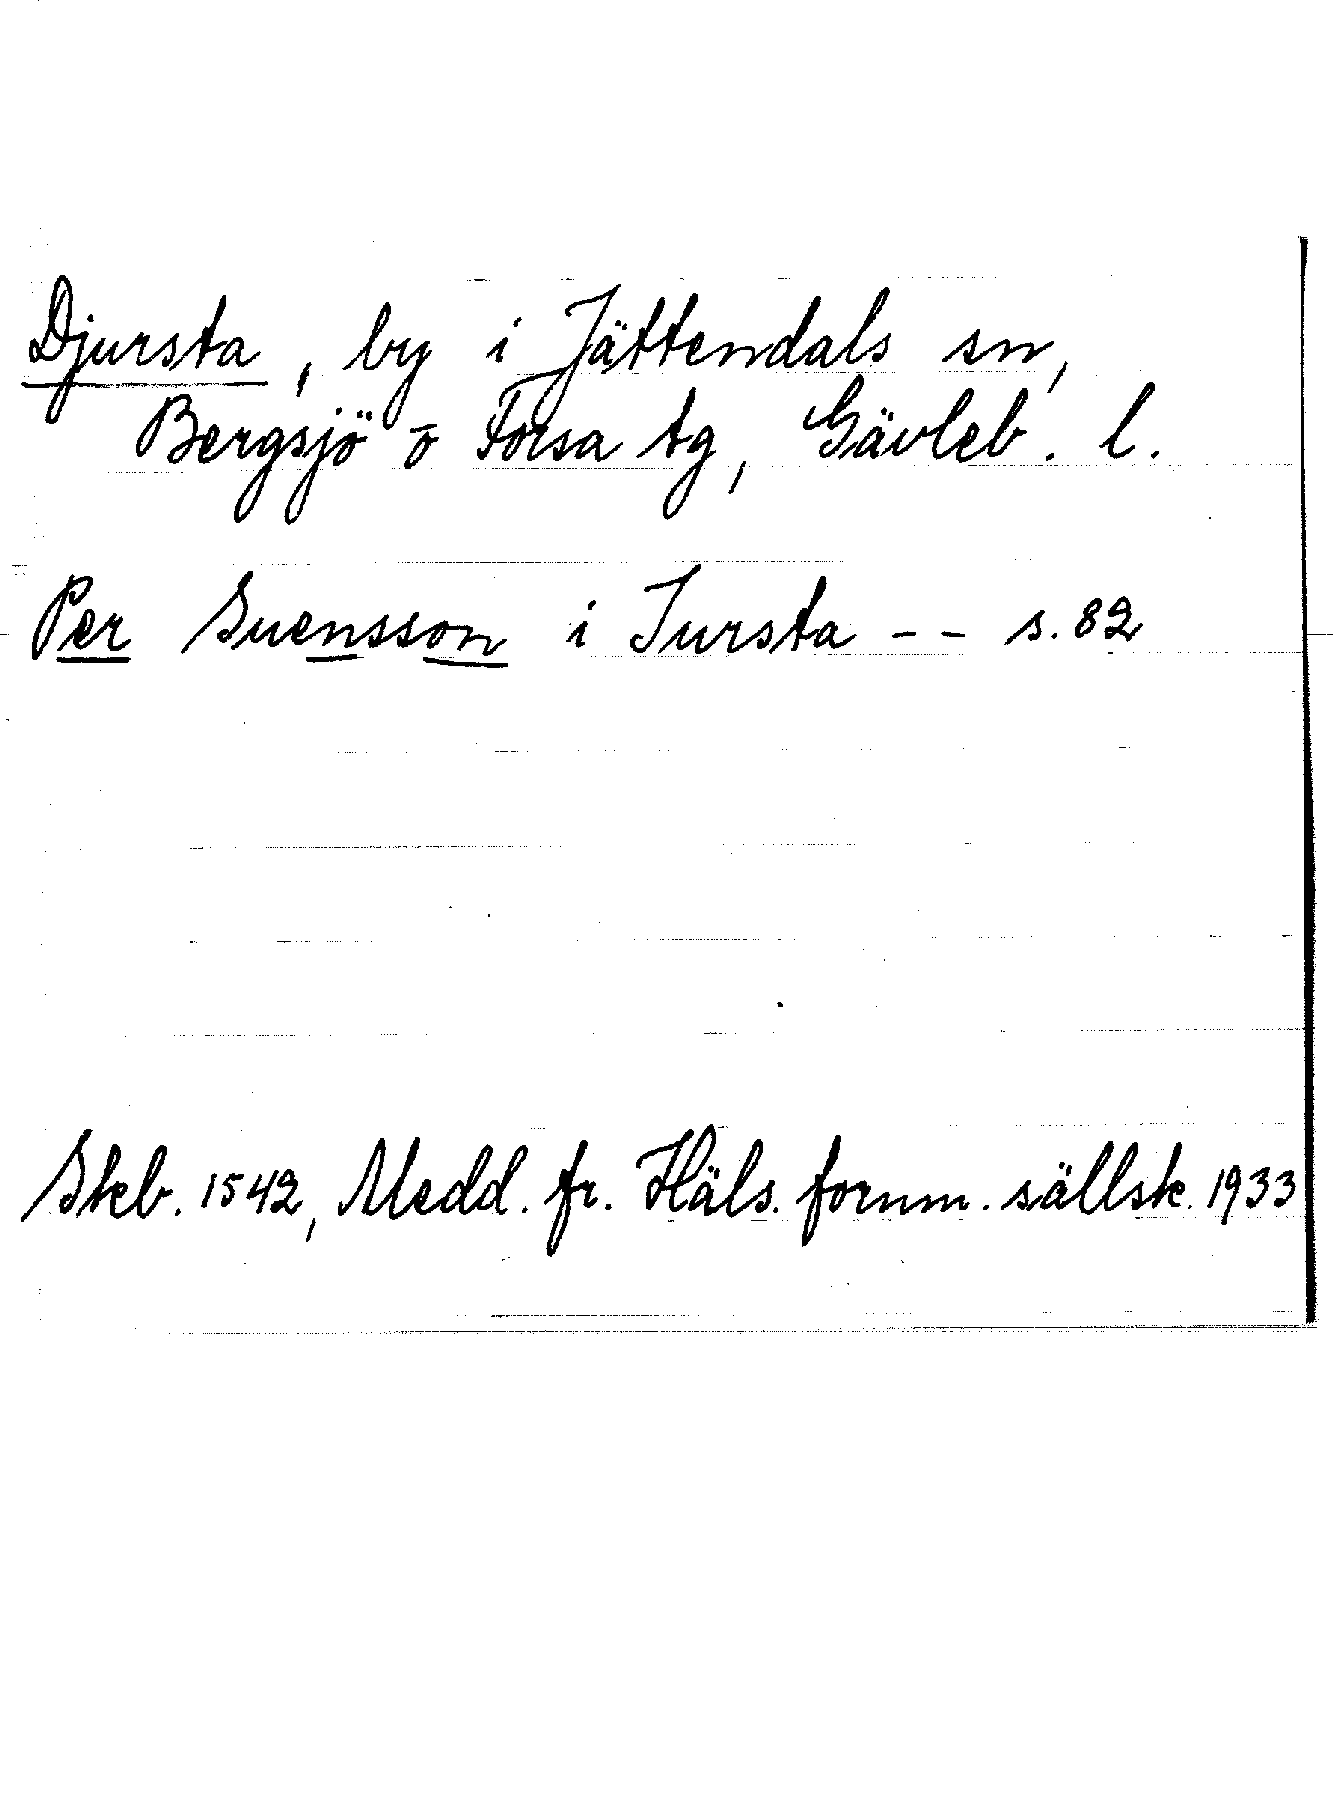 Djursta, by i Jättendals sn,
Bergsjö o Forsa tg, Gävleb. l.
Per Suensson i Jursta -- s. 82
Skeb. 1542, Medd. fr. Häls. fornm. sällsk. 1933